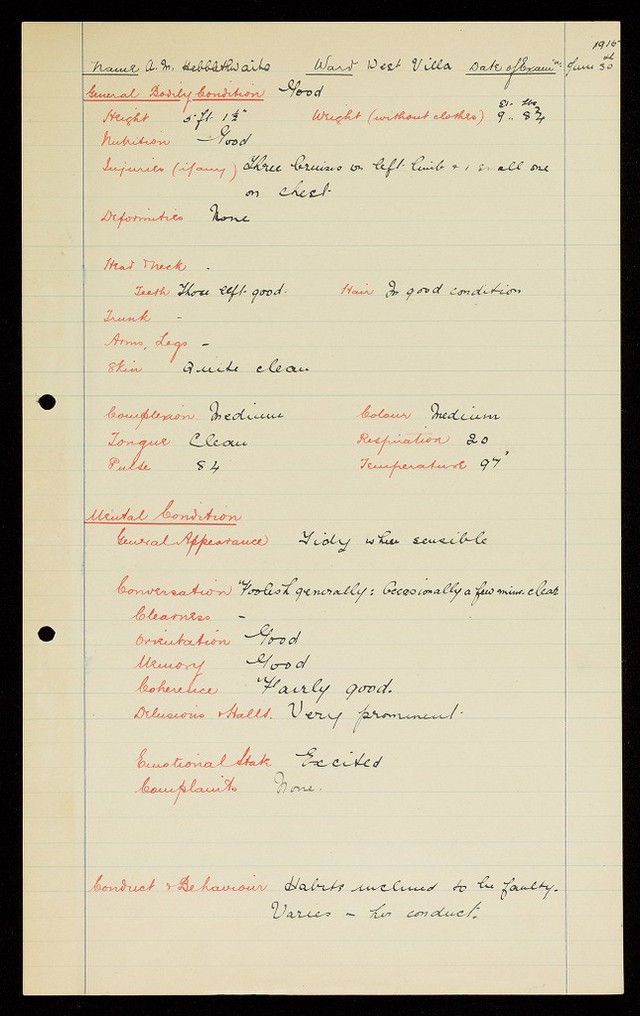 1915
Name A. M. Hebblethwaite Ward West Villa Date of Exam.n: June 30th
General Bodily Condition Good
Height 5 ft. 1½" Weight (without clothes) St. lbs 9 .. 8¾
Nutrition Good
Injuries (if any) Three bruises on left limb & 1 small one
on chest.
Deformities None
Head & neck -
Teeth Those left good. Hair In good condition
Trunk -
Arms, Legs -
Skin Quite clean
Complexion Medium Colour Medium
Tongue Clean Respiration 20
Pulse 84 Temperature 97°
Mental Condition
General Appearance Tidy when sensible
Conversation "Foolish generally: Occasionally a few mins. clear
Clearness -
Orientation Good
Memory Good
Coherence "Fairly good.
Delusions & Halls. Very prominent.
Emotional State Excited
Complaints None.
Conduct & Behaviour Habits inclined to be faulty.
Varies - her conduct.